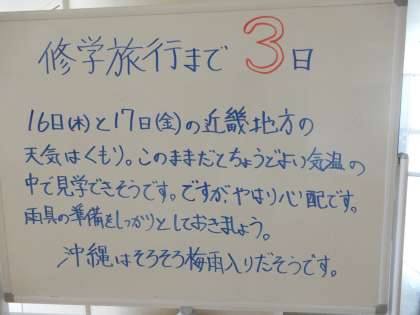 修学旅行まで 3日
16日(木)と17日(金)の近畿地方の
天気はくもり。このままだとちょうどよい気温の
中で見学できそうです。ですが、やはり心配です。
雨具の準備をしっかりとしておきましょう。
沖縄はそろそろ梅雨入りだそうです。